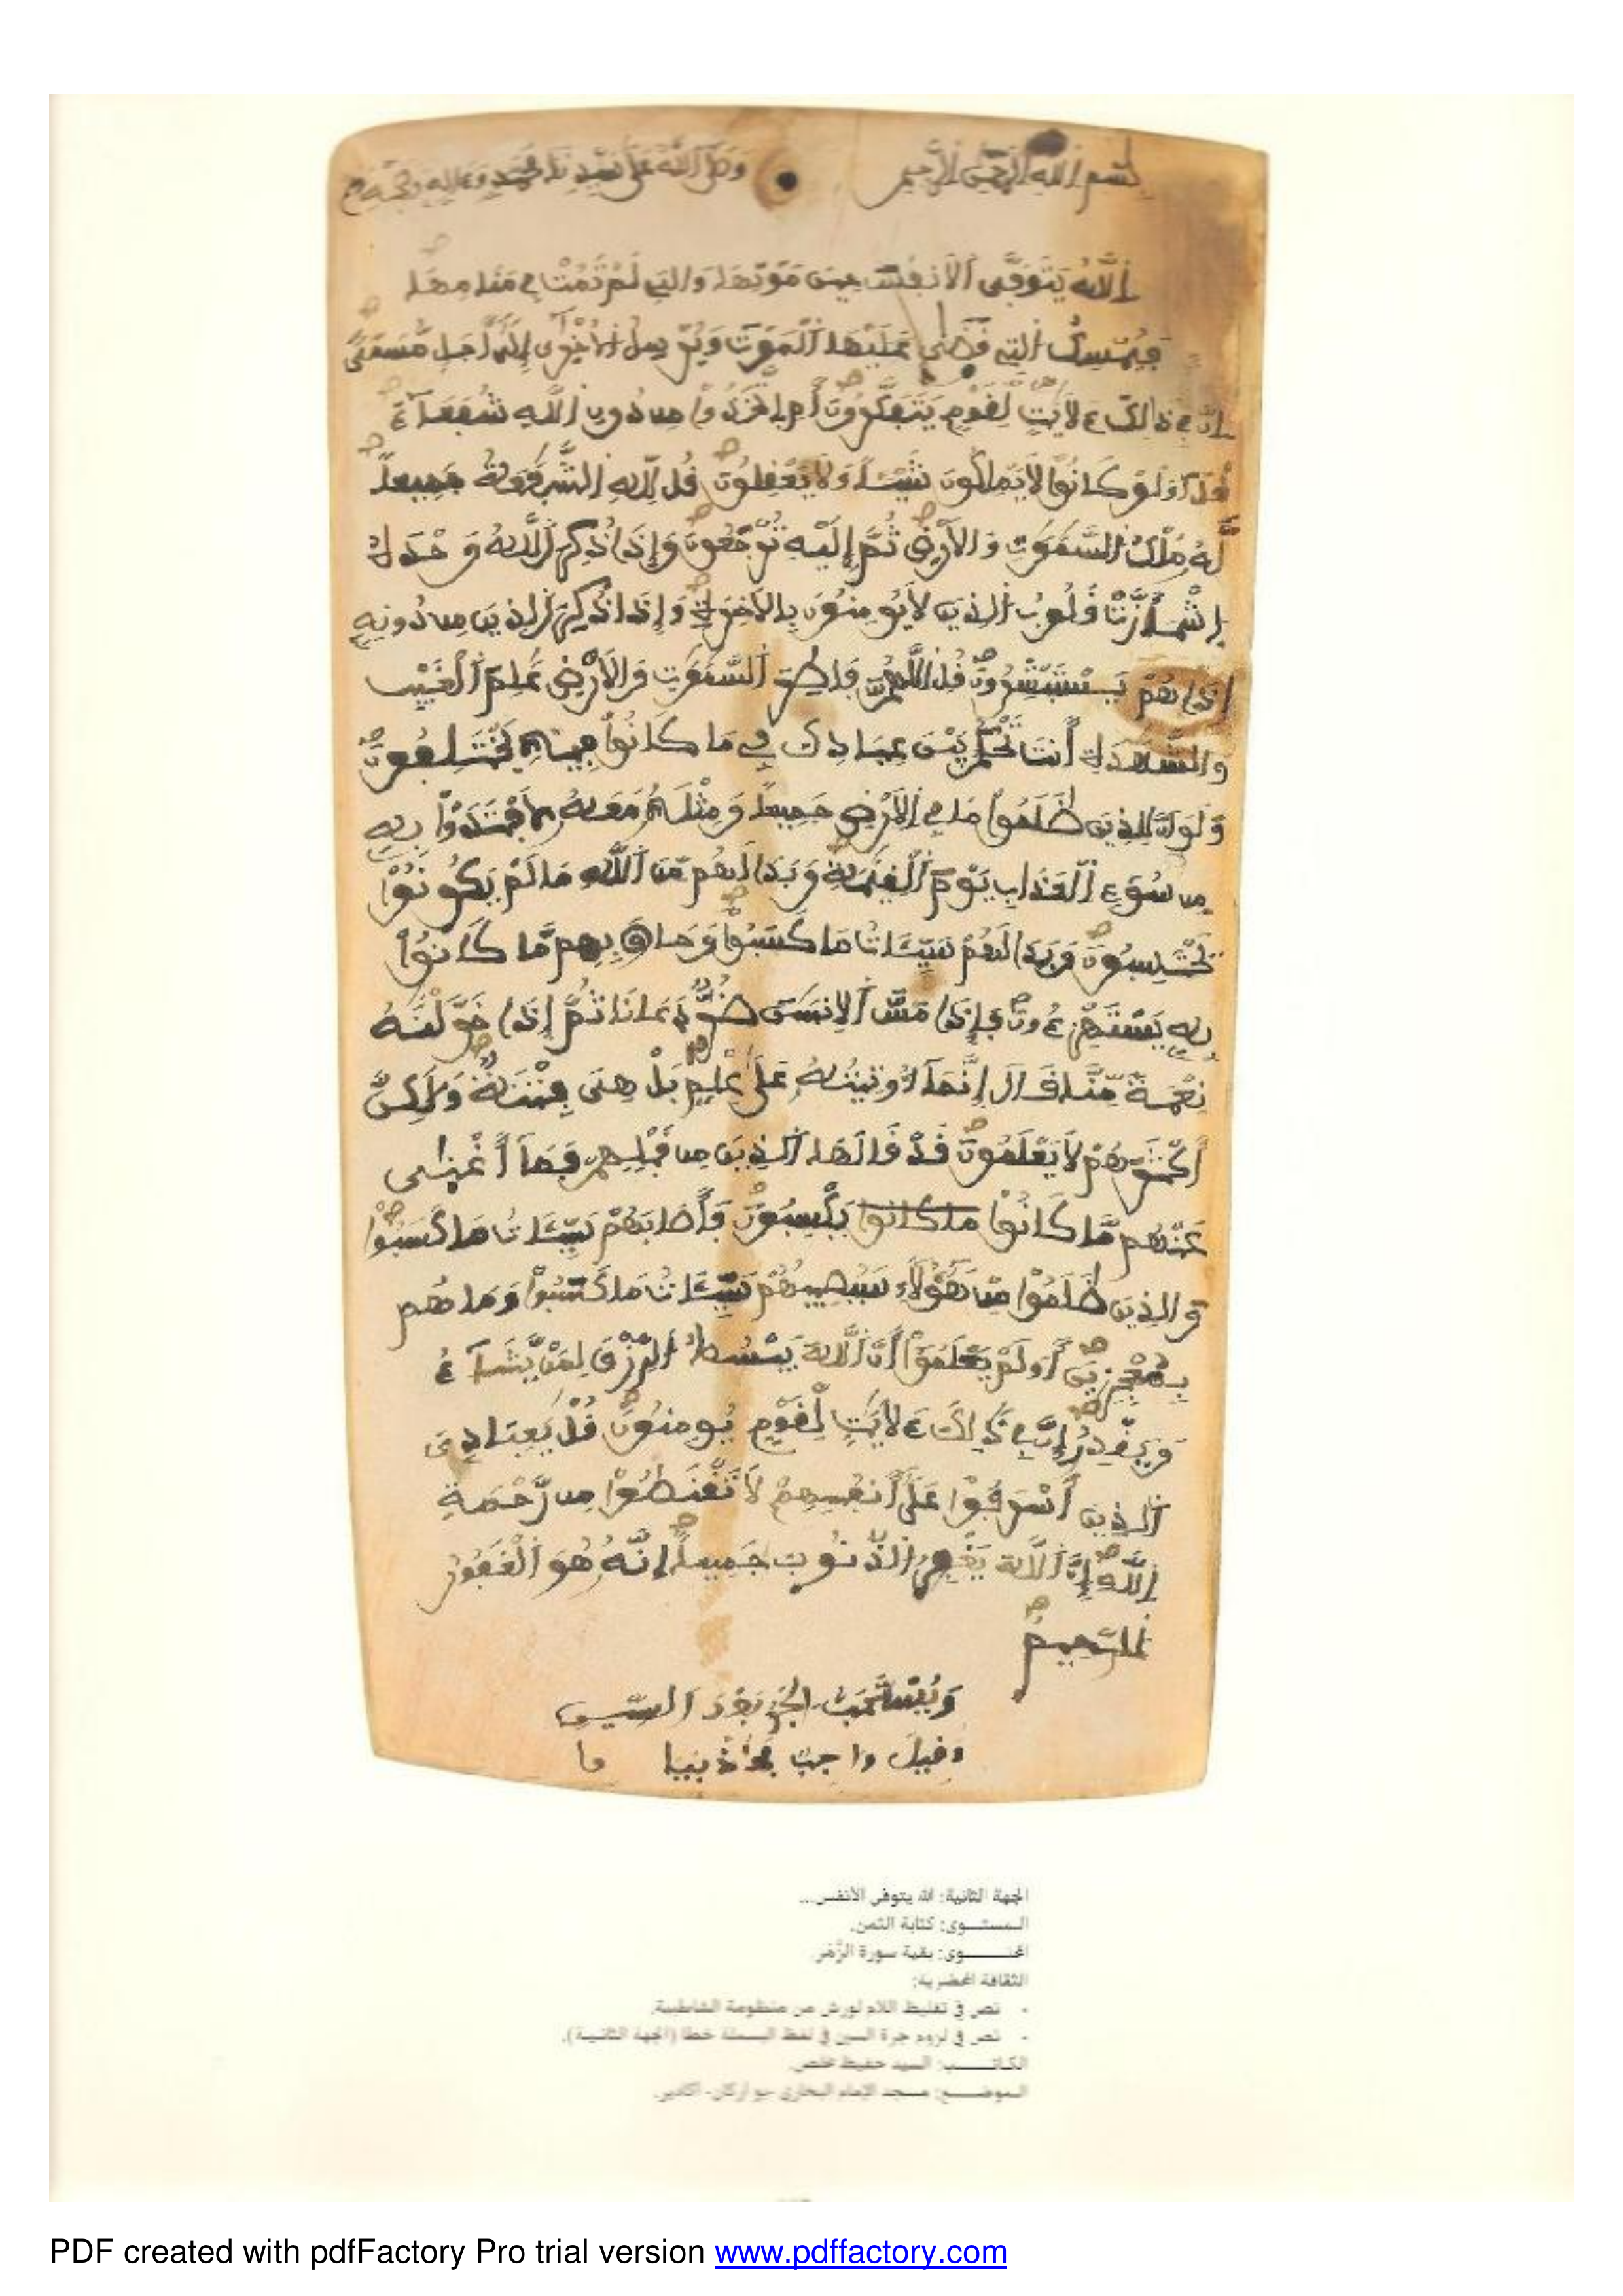 بسم الله الرحمن الرحيم وصلى الله على سيدنا محمد وءاله وصحبه
اَ۬للَّهُ يَتَوَفَّى اَ۬لَانفُسَ حِينَ مَوْتِهَا وَالتِي لَمْ تَمُتْ فِي مَنَامِهَا
فَيُمْسِكُ اُ۬لتِي قَضَىٰ عَلَيْهَا اَ۬لْمَوْتَ وَيُرْسِلُ اُ۬لُاخْرَىٰ إِلَىٰ أَجَلٍ مُّسَمًّى
اِنَّ فِي ذَٰلِكَ ءَلَايَٰتٍ لِّقَوْمٍ يَتَفَكَّرُونَ أَمِ اِ۪تَّخَذُواْ مِن دُونِ اِ۬للَّهِ شُفَعَآءَ
قُلَ اَوَلَوْ كَانُواْ لَا يَمْلِكُونَ شَيْـٔاً وَلَا يَعْقِلُونَ قُل لِّلهِ اِ۬لشَّفَٰعَةُ جَمِيعاً
لَّهُۥ مُلْكُ اُ۬لسَّمَٰوَٰتِ وَالَارْضِ ثُمَّ إِلَيْهِ تُرْجَعُونَ وَإِذَا ذُكِرَ اَ۬للَّهُ وَحْدَهُ
اِ۪شْمَأَزَّتْ قُلُوبُ اُ۬لذِينَ لَا يُومِنُونَ بِالَاخِرَةِ وَإِذَا ذُكِرَ اَ۬لذِينَ مِن دُونِهِ
إِذَا هُمْ يَسْتَبْشِرُونَ قُلِ اِ۬للَّهُمَّ فَاطِرَ اَ۬لسَّمَٰوَٰتِ وَالَارْضِ عَٰلِمَ اَ۬لْغَيْبِ
وَالشَّهَٰدَةِ أَنتَ تَحْكُمُ بَيْنَ عِبَادِكَ فِي مَا كَانُواْ فِيهِ يَخْتَلِفُونَ
وَلَوَ اَنَّ لِلذِينَ ظَلَمُواْ مَا فِي اِ۬لَارْضِ جَمِيعاً وَمِثْلَهُۥ مَعَهُۥ لَافْتَدَوْاْ بِهِ
مِن سُوٓءِ اِ۬لْعَذَابِ يَوْمَ اَ۬لْقِيَٰمَةِ وَبَدَا لَهُم مِّنَ اَ۬للَّهِ مَا لَمْ يَكُونُواْ
يَحْتَسِبُونَ وَبَدَا لَهُمْ سَيِّـَٔاتُ مَا كَسَبُواْ وَحَاقَ بِهِم مَّا كَانُواْ
بِهِ يَسْتَهْزِءُونَ فَإِذَا مَسَّ اَ۬لِانسَٰنَ ضُرٌّ دَعَانَا ثُمَّ إِذَا خَوَّلْنَٰهُ
نِعْمَةً مِّنَّا قَالَ إِنَّمَآ أُوتِيتُهُۥ عَلَىٰ عِلْمٍ بَلْ هِيَ فِتْنَةٌ وَلَٰكِنَّ
أَكْثَرَهُمْ لَا يَعْلَمُونَ قَدْ قَالَهَا اَ۬لذِينَ مِن قَبْلِهِمْ فَمَآ أَغْنَىٰ
عَنْهُم مَّا كَانُواْ ما كانوا يَكْسِبُونَ فَأَصَابَهُمْ سَيِّـَٔاتُ مَا كَسَبُواْ
وَالذِينَ ظَلَمُواْ مِنْ هَٰٓؤُلَآءِ سَيُصِيبُهُمْ سَيِّـَٔاتُ مَا كَسَبُواْ وَمَا هُم
بِمُعْجِزِينَ أَوَلَمْ يَعْلَمُوٓاْ أَنَّ اَ۬للَّهَ يَبْسُطُ اُ۬لرِّزْقَ لِمَنْ يَّشَآءُ
وَيَقْدِرُ إِنَّ فِي ذَٰلِكَ ءَلَايَٰتٍ لِّقَوْمٍ يُومِنُونَ قُلْ يَٰعِبَادِيَ
اَ۬لذِينَ أَسْرَفُواْ عَلَىٰ أَنفُسِهِمْ لَا تَقْنَطُواْ مِن رَّحْمَةِ
اِ۬للَّهِ إِنَّ اَ۬للَّهَ يَغْفِرُ اُ۬لذُّنُوبَ جَمِيعاً إِنَّهُۥ هُوَ اَ۬لْغَفُورُ
اُ۬لرَّحِيمُ
وَيُسْتَحَبُّ الجر بَعْدَ السين
وقيل واجب
الجهة الثانية: الله يتوفى الأنفس...
المستوى: كتابة الثمن.
المحتوى: بقية سورة الزُّمَر.
الثقافة المحضرية:
- نص في تغليظ اللام لورش من منظومة الشاطبية.
- نص في لزوم جرة السين في لفظ البسملة خطا (الجهة الثانية).
الكاتب: السيد حفيظ مخلص.
الموضع: مسجد الإمام البخاري -بو اركان- اكادير.
PDF created with pdfFactory Pro trial version www.pdffactory.com